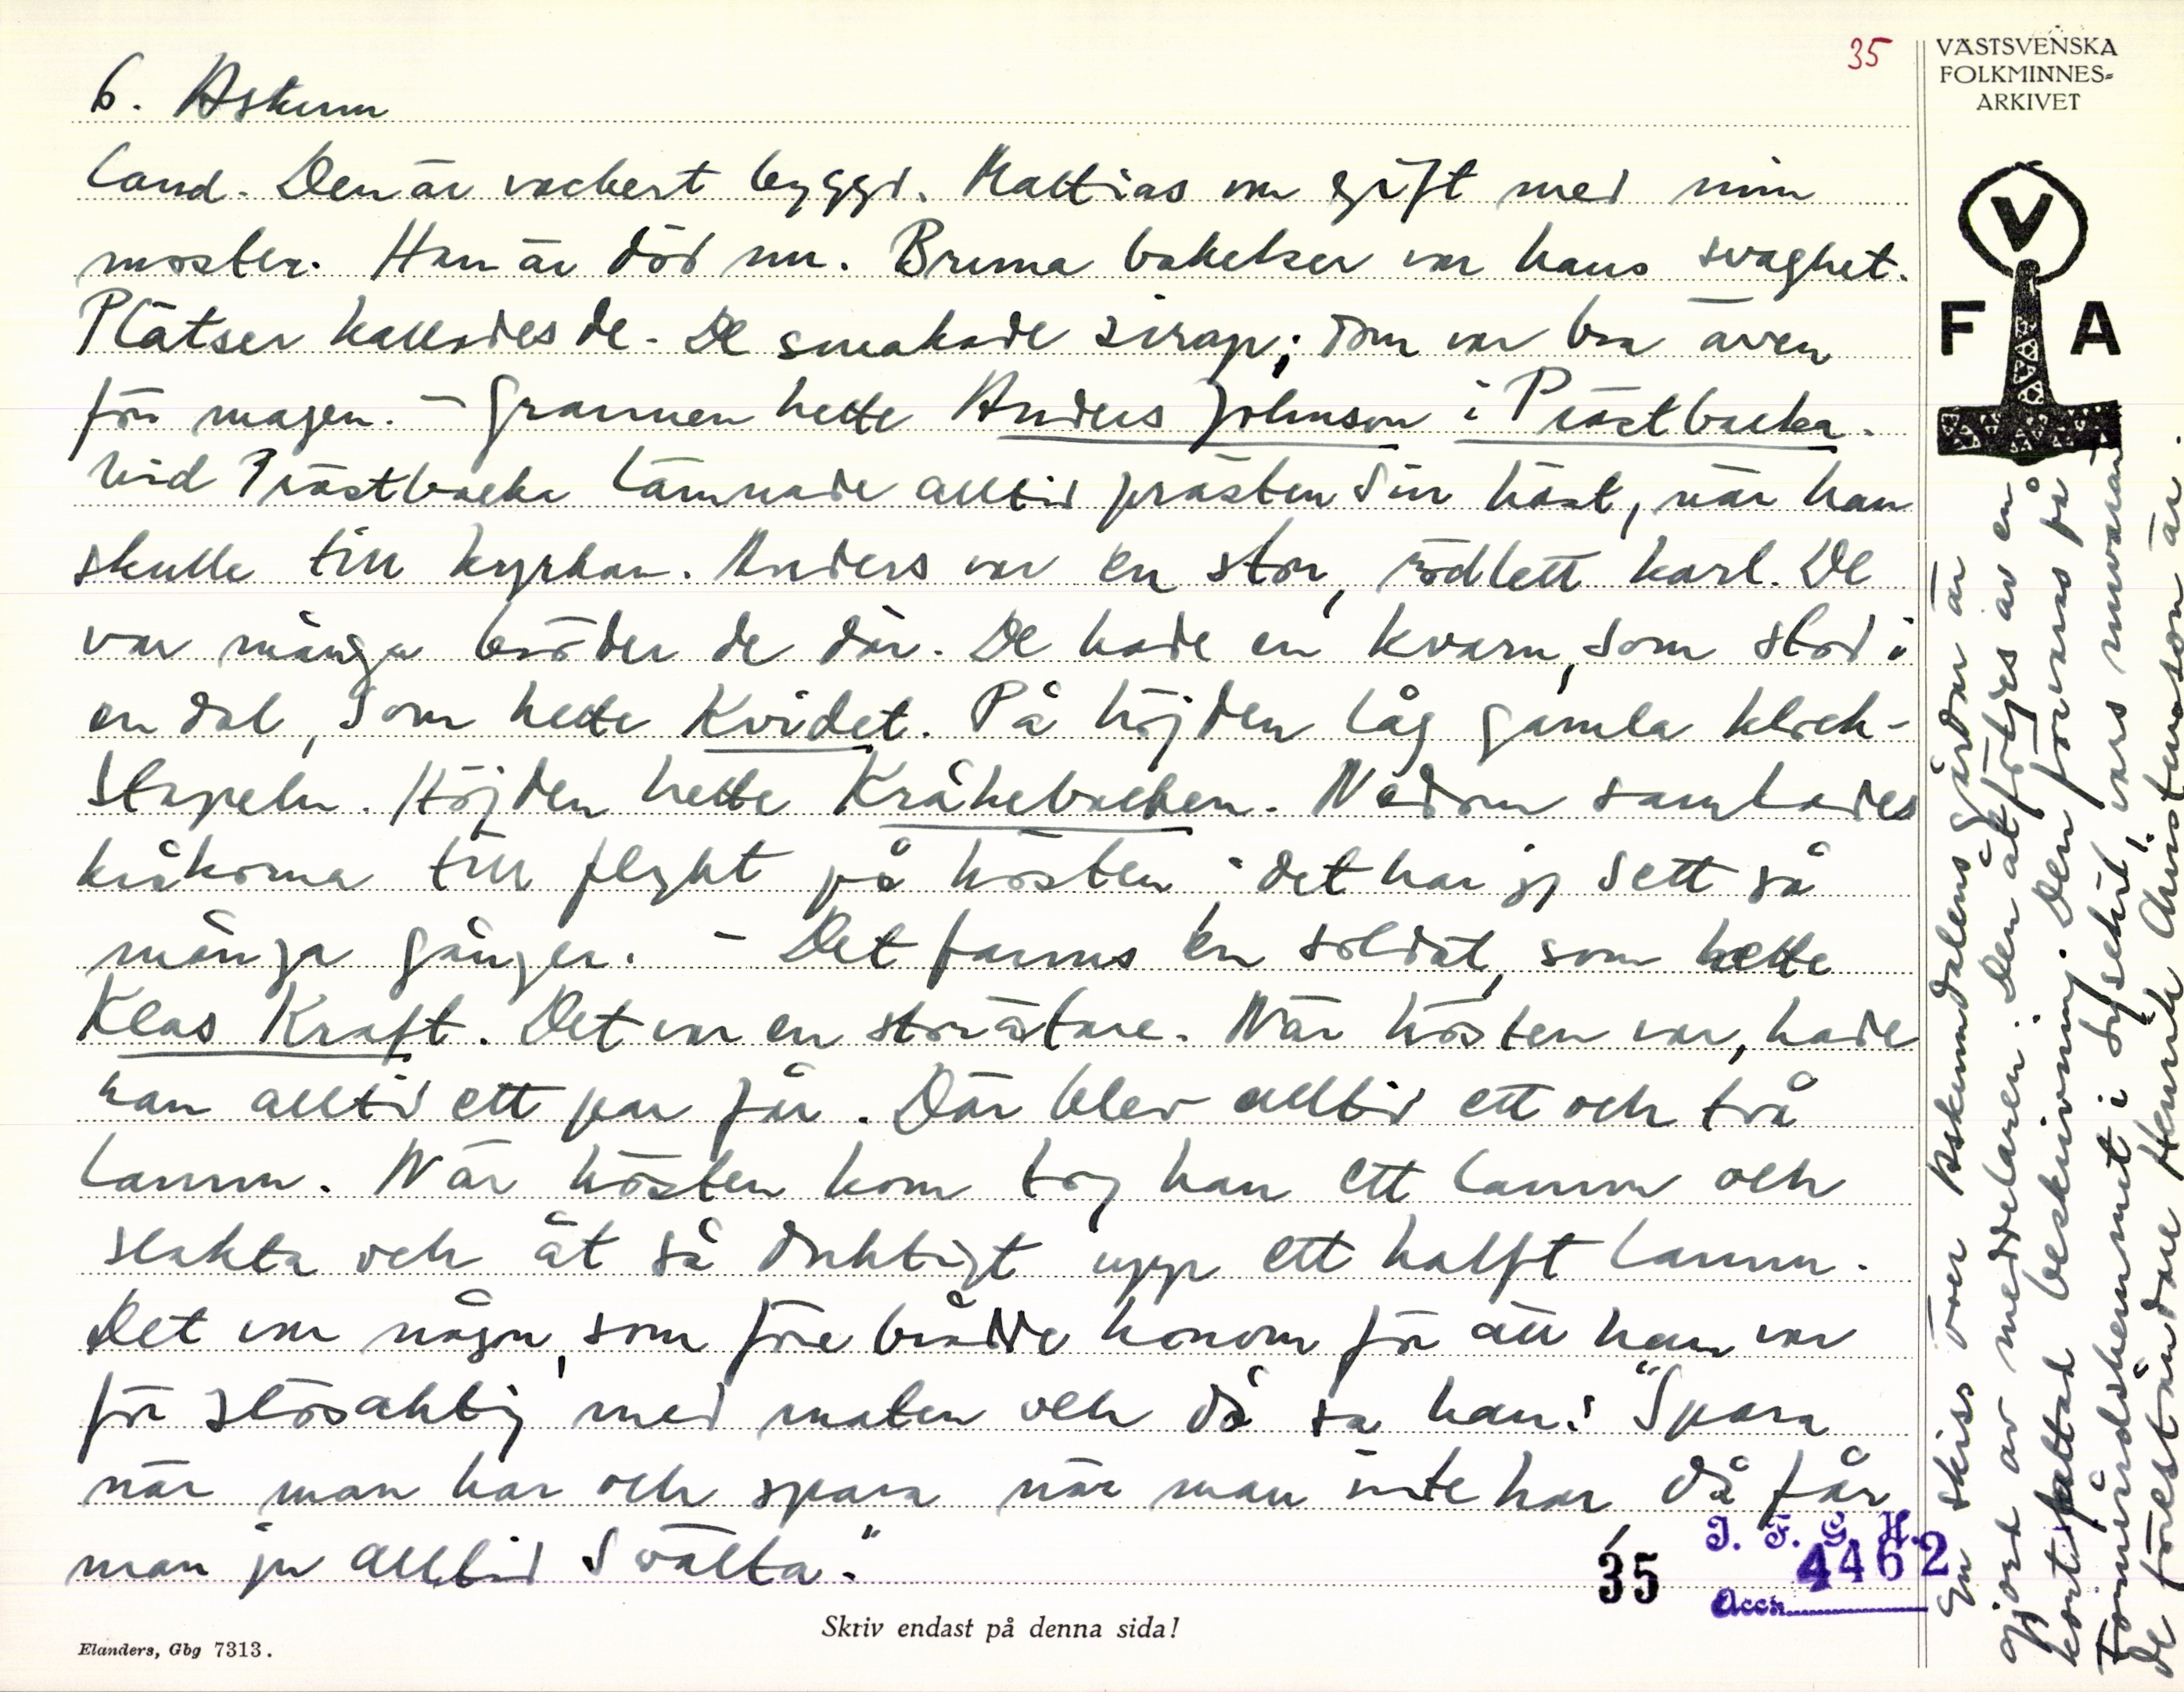 35
6. Askum
land. Den är vackert byggd. Mattias var gift med min
moster. Han är död nu. Bruna bakelser var hans svaghet.
Plätser kallades de. De smakade sirap; som var bra även
för magen. - Grannen hette Anders Johnson i Prästbacka.
Vid Prästbacka lämnade alltid prästen sin häst, när han
skulle till kyrkan. Anders var en stor, rödlett karl. De
var många bröder de där. De hade en kvarn, som stod i
en dal, som hette Kvidet. På höjden låg gamla klock-
stapeln. Höjden hette Kråkebacken. Nedom samlades
kråkorna till flykt på hösten; det har jag sett så
många gånger. - Det fanns en soldat, som hette
Klas Kraft. Det var en storätare. När hösten var, hade
han alltid ett par får. Där blev alltid ett och två
lamm. När hösten kom tog han ett lamm och
slakta och åt så duktigt upp ett halft lamm.
Det var någon, som förebrådde honom för att han var
för slösaktig med maten och då sa han: "Spara
när man har och spara när man inte har, då får
man ju alltid svälta."
35
I. F. G. H.
4462
Accr.
Skriv endast på denna sida!
Elanders, Gbg 7313.
VÄSTSVENSKA
FOLKMINNES-
ARKIVET
V
F A
En skiss över Askumdalens gårdar är
gjord av meddelaren. Den åtföljes av en
kortfattad beskrivning. Den förvaras på
Fornvårdshemmet i Lysekil, vars nuvaran-
de föreståndare Henrik Christensson är.